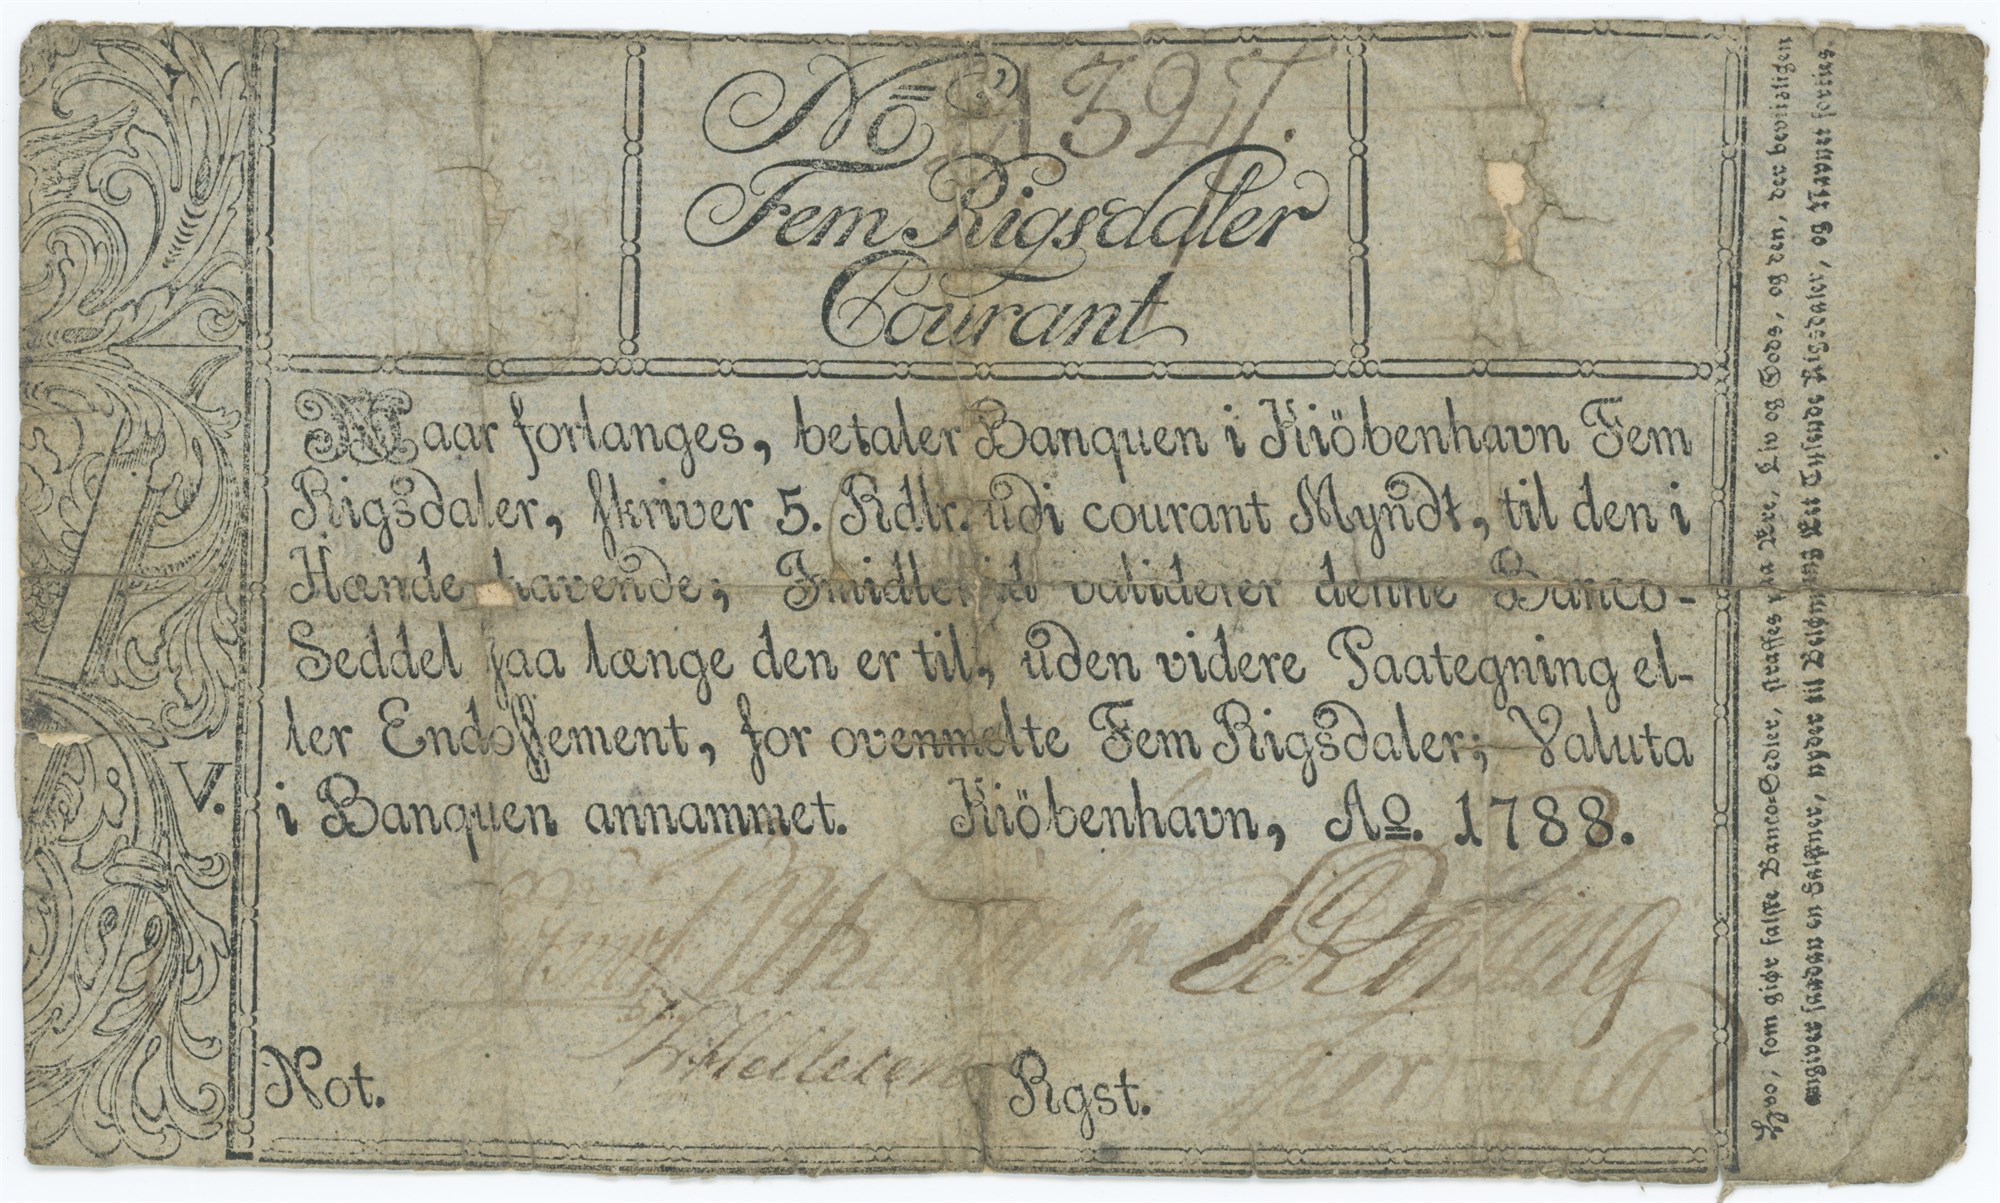 No 1324
Fem Rigsdaler
Courant
Naar forlanges, betaler Banquen i Kiöbenhavn Fem
Rigsdaler, skriver 5. Rdlr. udi courant Myndt, til den i
Hænde havende; Imidlertid validerer denne Banco-
Seddel saa længe den er til, uden videre Paategning el-
ler Endossement, for ovenmelte Fem Rigsdaler; Valuta
V.
i Banquen annammet. Kiöbenhavn, Ao. 1788.
Not.
Rgst.
Hvo, som giør falske Banco-Sedler, straffes paa Ære, Liv og Gods, og den, der beviisligen
angiver saadan en Falskner, nyder til Belønning Eet Tusinde Rigsdaler, og Navnet forties.